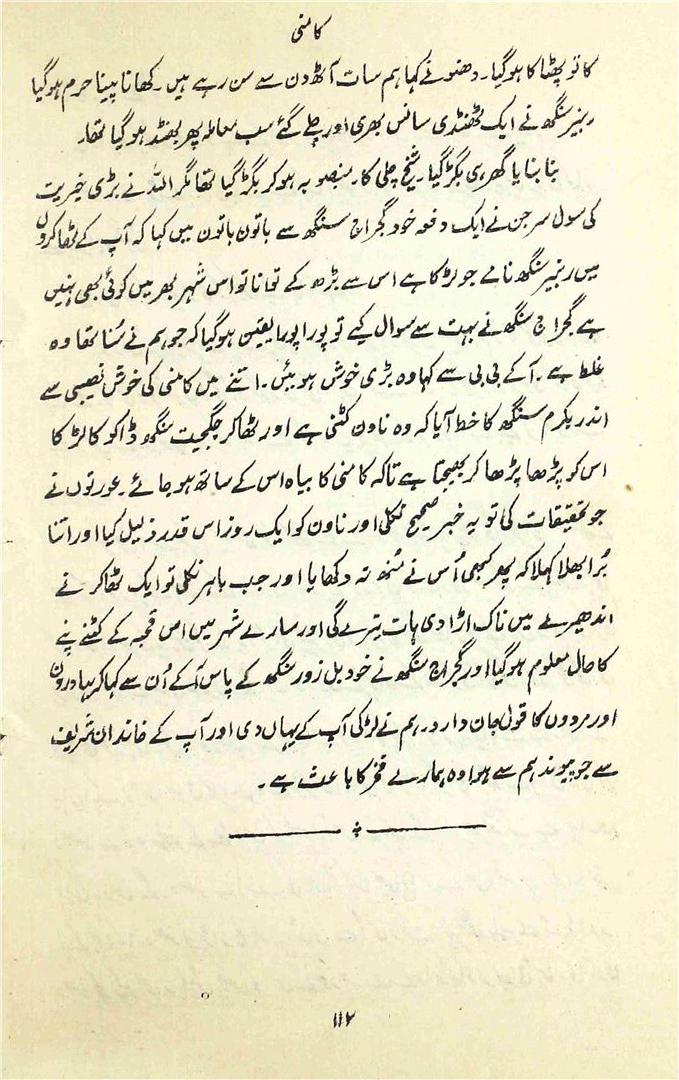 کامنی
کا تو پھٹا کا ہوگیا۔ دھنو نے کہا ہم سات آٹھ دن سے سن رہے ہیں۔ کھانا پینا حرم ہوگیا
رنبیر سنگھ نے ایک ٹھنڈی سانس بھری اور چلے گئے سب معاملہ پھر بھنڈ ہو گیا تھا۔
بنا بنایا گھر ہی بگڑ گیا۔ شیخ چلی کا۔ منصوبہ ہو کر بگڑ گیا تھا مگر اللہ نے بڑی خیریت
کی سول سرجن نے ایک دفعہ خود گجراج سنگھ سے باتون باتون میں کہا کہ آپ کے ٹھاکروں
میں رنبیر سنگھ نامے جو لڑکا ہے اس سے بڑھ کے توانا تو اس شہر بھر میں کوئی بھی نہیں
ہے گجراج سنگھ نے بہت سے سوال کیے تو پورا پورا یقین ہوگیا کہ جو ہم نے سُنا تھا وہ
غلط ہے۔ آکے بی بی سے کہا وہ بڑی خوش ہوئیں۔ اتنے میں کامنی کی خوش نصیبی سے
اندر بکرم سنگھ کا خط آیا کہ وہ ناون کٹنی ہے اور ٹھاکر جگجیت سنگھ ڈاکو کا لڑکا
اس کو پڑھا پڑھا کر بھیجتا ہے تاکہ کامنی کا بیاہ اس کے ساتھ ہو جائے۔ عورتوں نے
جو تحقیقات کی تو یہ خبر صحیح نکلی اور ناون کو ایک روز اس قدر ذلیل کیا اور اتنا
بُرا بھلا کہلا کہ پھر کبھی اُس نے مُنھ نہ دکھایا اور جب باہر نکلی تو ایک ٹھاکر نے
اندھیرے میں ناک اڑا دی ہات تیرے کی اور سارے شہر میں اس قحبہ کے کٹنے پنے
کا حال معلوم ہوگیا اور گجراج سنگھ نے خود بل زور سنگھ کے پاس آکے اُن سے کہا کر بہادرون
اور مردوں کا قول جان دارد۔ ہم نے لڑکی آپ کے یہاں دی اور آپ کے خاندان شریف
سے جو پیوند ہم سے ہوا وہ ہمارے فخر کا باعث ہے۔
۱۱۷